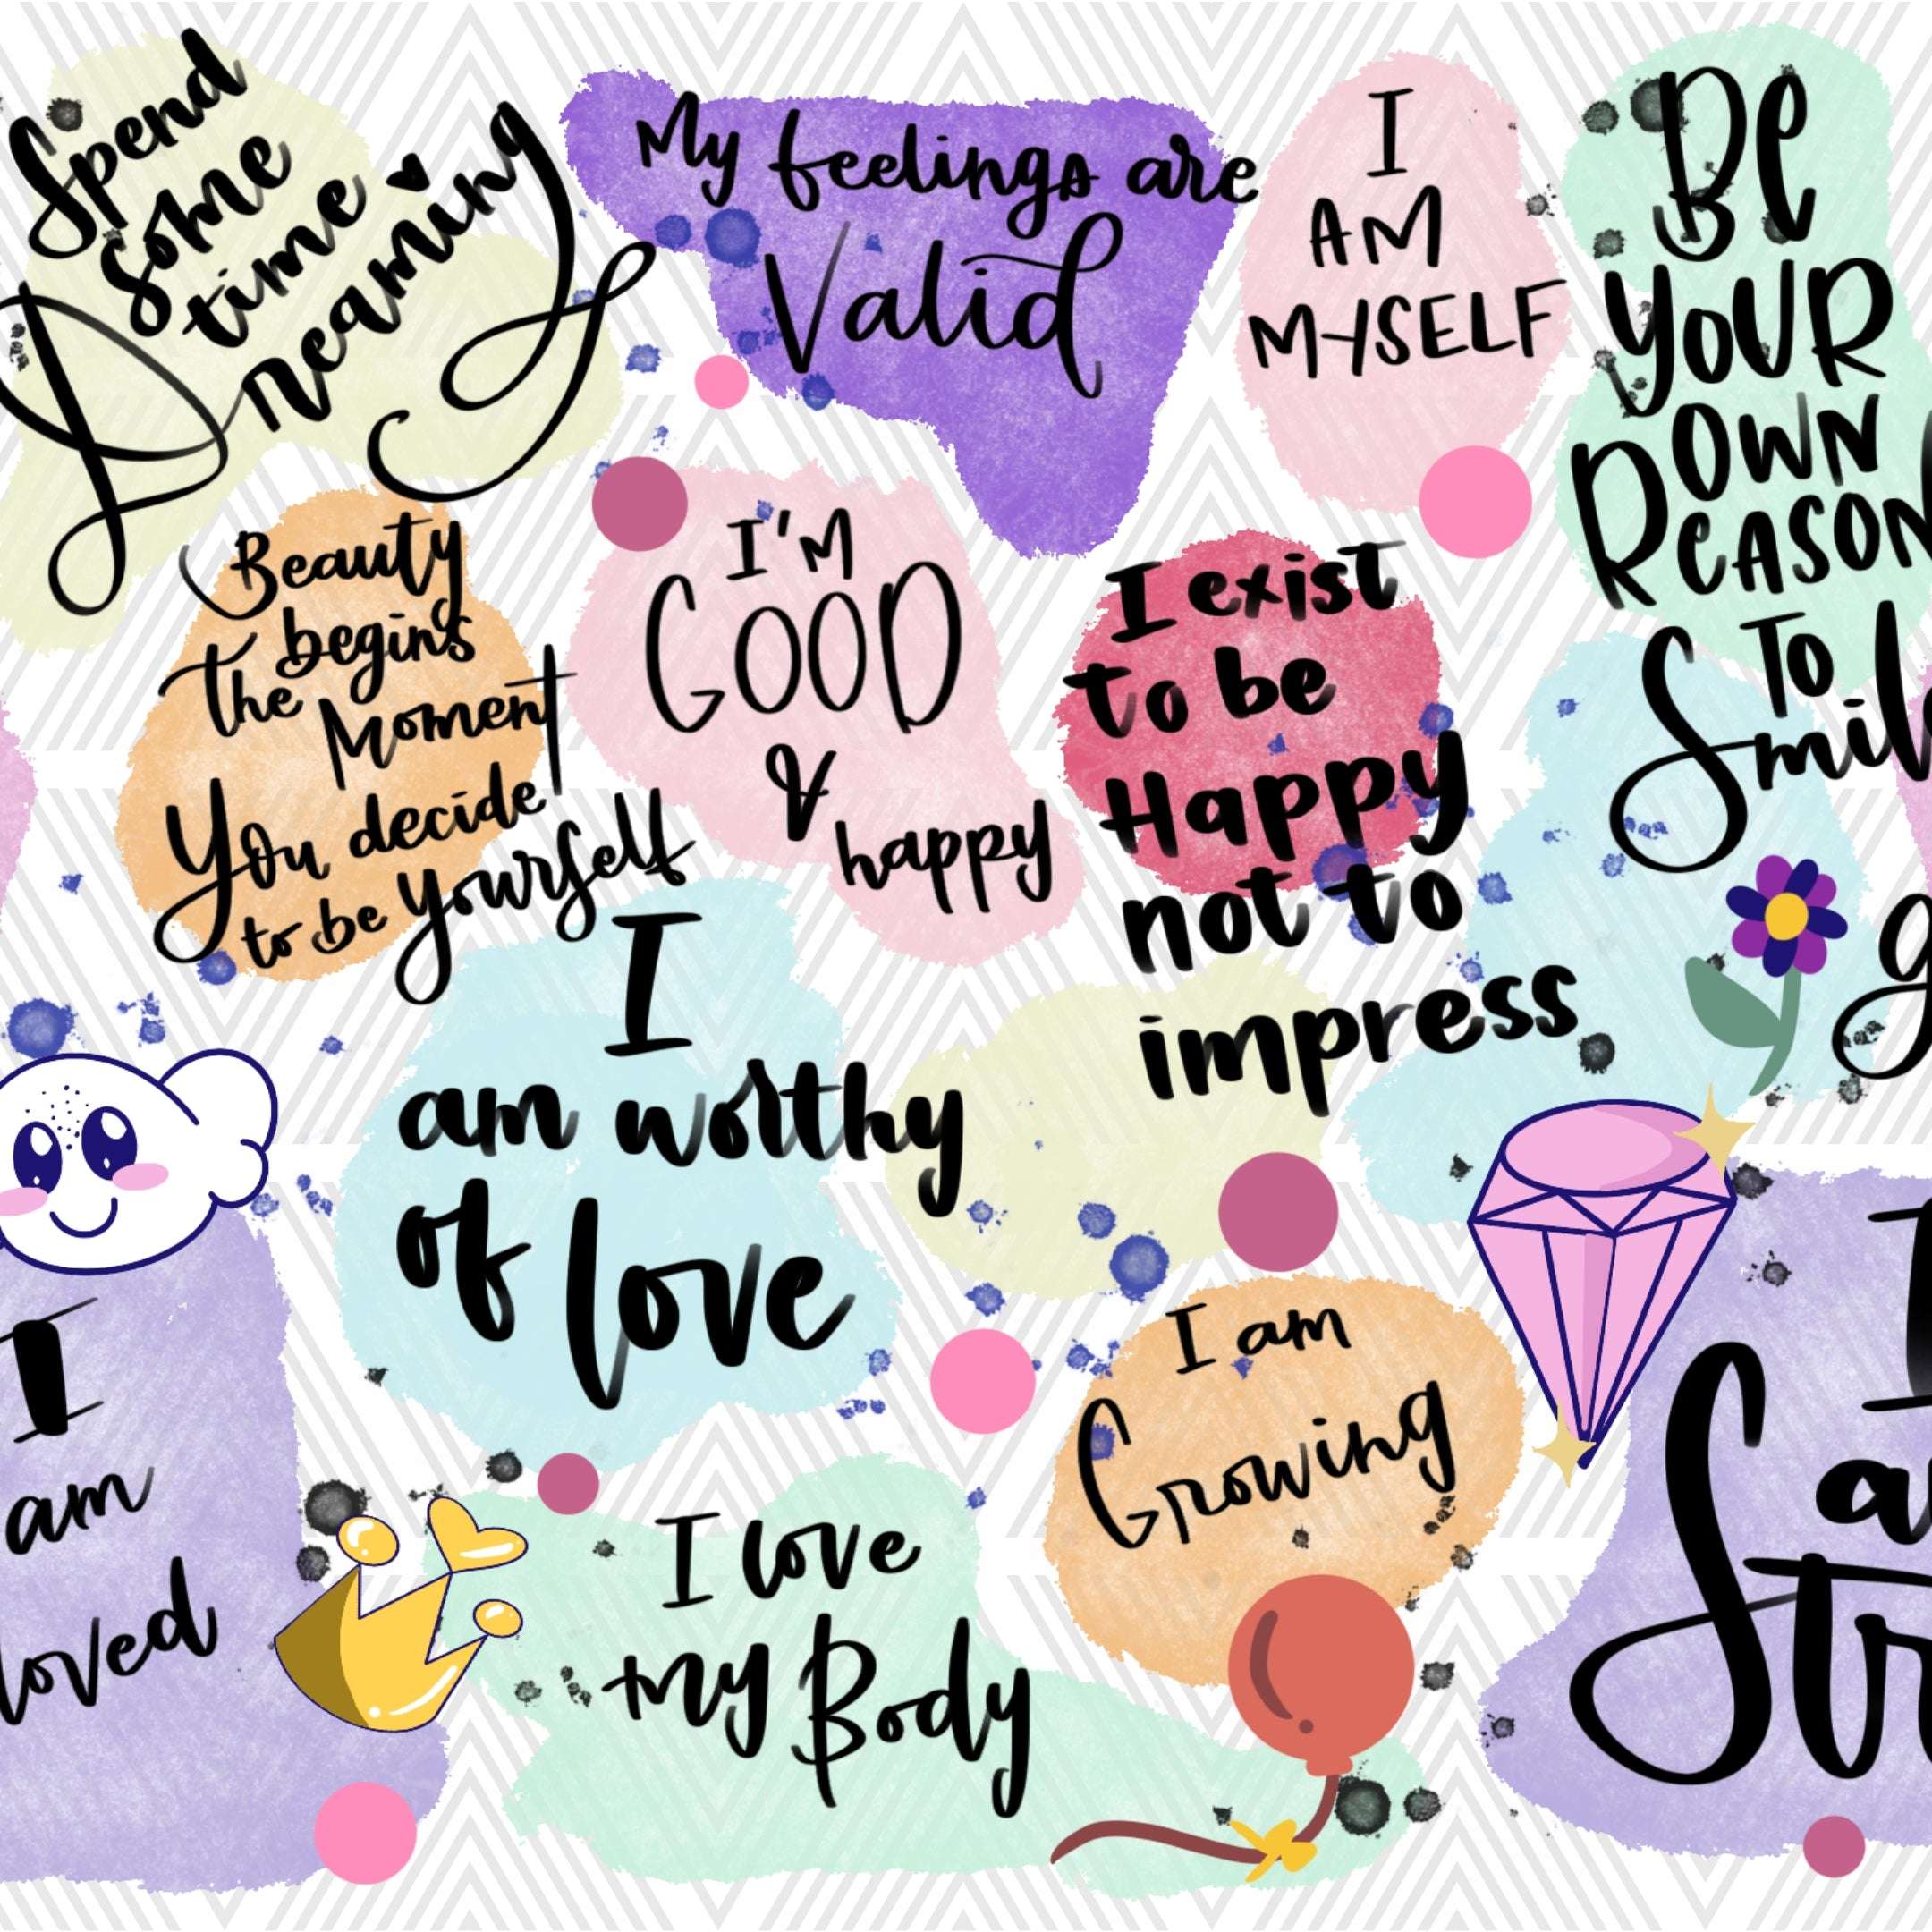 Spend
some
time
Dreaming
My feelings are
Valid
I
AM
MYSELF
Be
YOUR
OWN
REASON
TO
Beauty
begins
the
Moment
You decide
to be yourself
I'M
GOOD
&
happy
I exist
to be
Happy
not to
impress
I
am worthy
of love
I
am
loved
I love
my Body
I am
Growing
I